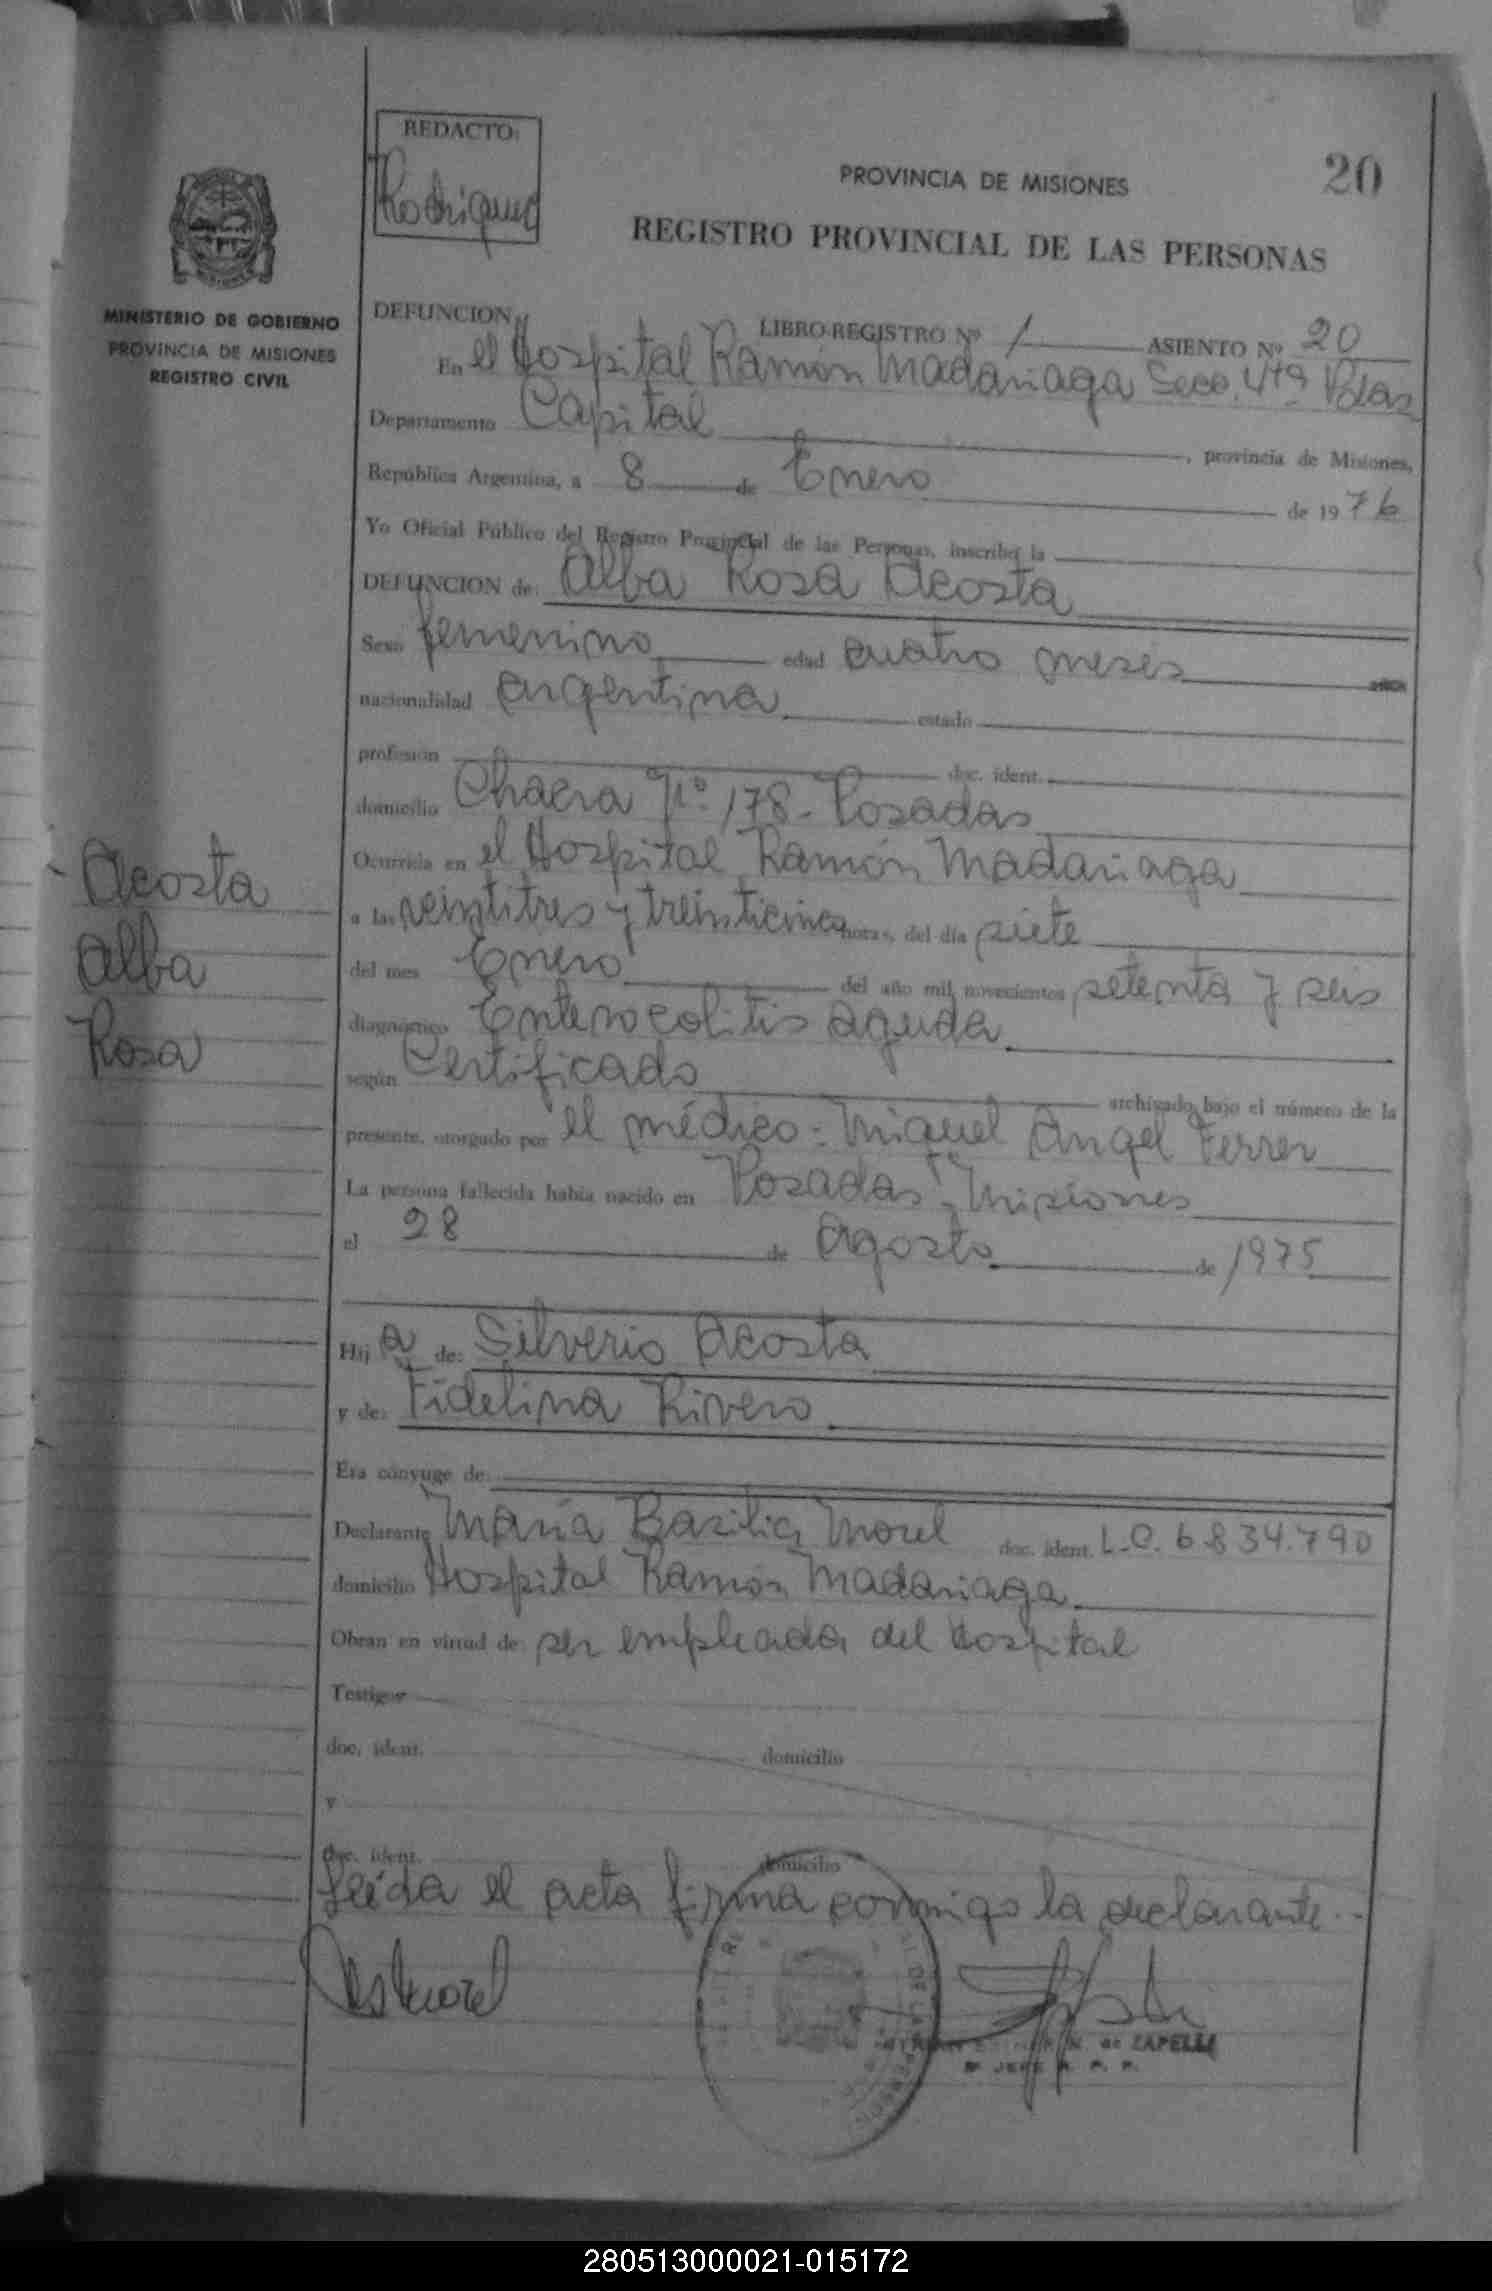 REDACTO:
Rodriguez
20
PROVINCIA DE MISIONES
REGISTRO PROVINCIAL DE LAS PERSONAS
MINISTERIO DE GOBIERNO
PROVINCIA DE MISIONES
REGISTRO CIVIL
DEFUNCION LIBRO-REGISTRO Nº 1 ASIENTO Nº 20
En el Hospital Ramón Madariaga Secc. 4ta Pdas
Departamento Capital, provincia de Misiones,
República Argentina, a 8 de Enero de 1976
Yo Oficial Público del Registro Provincial de las Personas, inscribo la
DEFUNCION de: Alba Rosa Acosta
Sexo femenino edad cuatro meses años
nacionalidad argentina estado
profesión doc. ident.
domicilio Chacra Nº 178 - Posadas
Ocurrida en el Hospital Ramón Madariaga
a las veintitres y treinticinco horas, del día siete
del mes Enero del año mil novecientos setenta y seis
diagnóstico Enterocolitis aguda
según Certificado archivado bajo el número de la
presente, otorgado por el médico: Miguel Angel Ferrer
La persona fallecida había nacido en Posadas, Misiones
el 28 de agosto de 1975
Hij a de: Silverio Acosta
y de: Fidelina Rivero
Era cónyuge de:
Declarante María Bazilia Morel doc. ident. L.C. 6834.790
domicilio Hospital Ramón Madariaga
Obran en virtud de ser empleada del Hospital
Testigos
doc. ident. domicilio
y
doc. ident. domicilio
Leída el acta firma conmigo la declarante.-
Acosta
Alba
Rosa
de ZAPELLI
JEFE R. P. P.
280513000021-015172